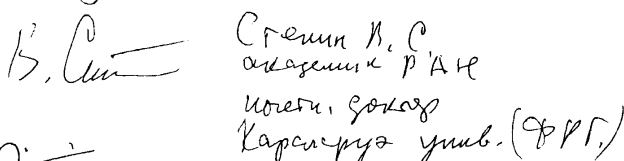 В. Ст
Степин В. С.
академик РАН
почетн. доктор
Карлсруэ унив. (ФРГ.)